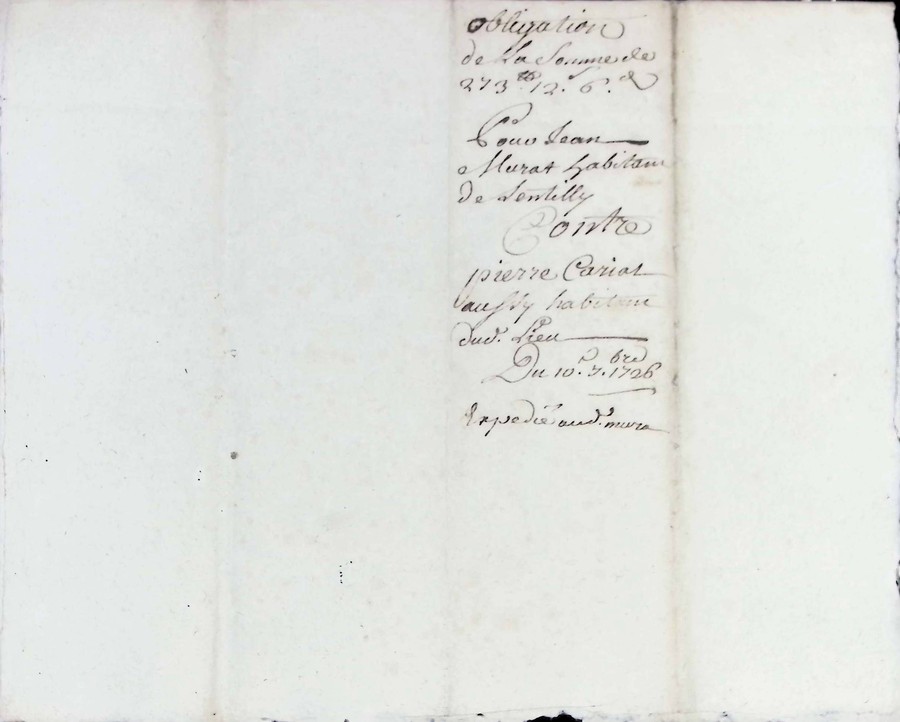 obligation
de La Somme de
273.tt 12.s 6.d
Pour Jean
Murat habitant
de Lentilly
Contre
pierre Cariat
aussy habitant
dud. Lieu
Du 10.e 7.bre 1726
Expedié aud. mura